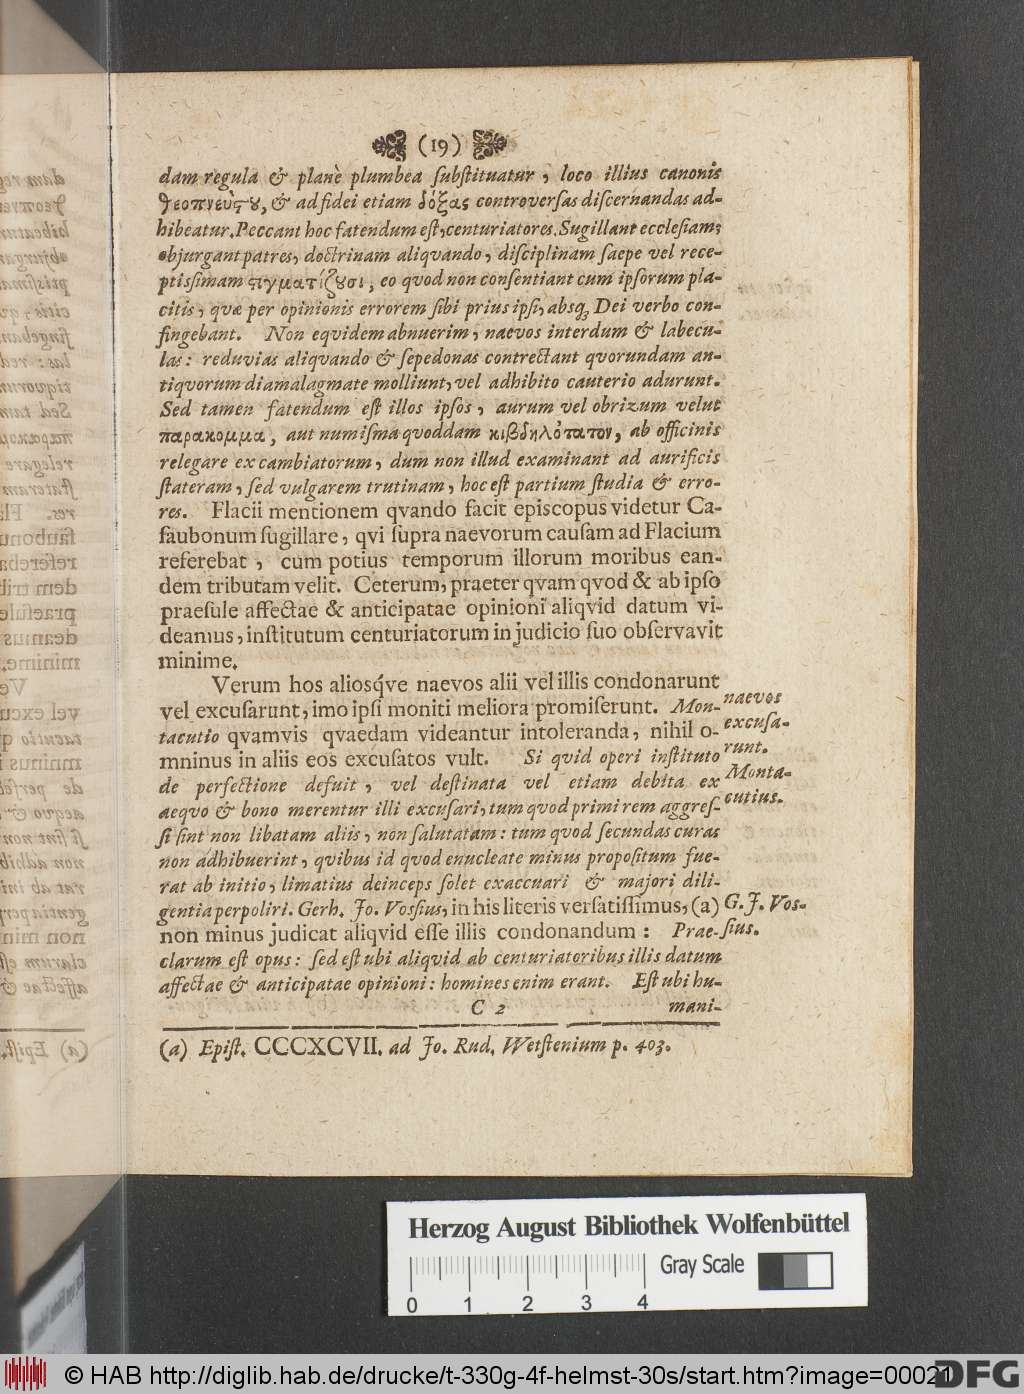 (19)
dam regula & planè plumbea ſubſtituatur, loco illius canonis
θεοπνεύϛου, & ad fidei etiam δόξας controverſas diſcernandas ad-
hibeatur. Peccant hoc fatendum eſt, centuriatores. Sugillant eccleſiam;
objurgant patres, doctrinam aliqvando, diſciplinam ſaepe vel rece-
ptiſsimam ϛιγματίζουσι, eo quod non conſentiant cum ipſorum pla-
citis, quæ per opinionis errorem ſibi prius ipſi, absq; Dei verbo con-
fingebant. Non eqvidem abnuerim, naevos interdum & labecu-
las: reduvias aliqvando & ſepedonas contrectant qvorundam an-
tiqvorum diamalagmate molliunt, vel adhibito cauterio adurunt.
Sed tamen fatendum eſt illos ipſos, aurum vel obrizum velut
παρακομμα, aut numiſma quoddam κιβδηλότατον, ab officinis
relegare ex cambiatorum, dum non illud examinant ad aurificis
ſtateram, ſed vulgarem trutinam, hoc eſt partium ſtudia & erro-
res. Flacii mentionem qvando facit epiſcopus videtur Ca-
ſaubonum ſugillare, qvi ſupra naevorum cauſam ad Flacium
referebat, cum potius temporum illorum moribus ean-
dem tributam velit. Ceterum, praeter qvam qvod & ab ipſo
praeſule affectae & anticipatae opinioni aliqvid datum vi-
deamus, inſtitutum centuriatorum in judicio ſuo obſervavit
minime.
Verum hos aliosq́ve naevos alii vel illis condonarunt
vel excuſarunt, imo ipſi moniti meliora promiſerunt. Mon-
tacutio qvamvis qvaedam videantur intoleranda, nihil o-
mninus in aliis eos excuſatos vult. Si qvid operi inſtituto
de perfectione defuit, vel deſtinata vel etiam debita ex
aeqvo & bono merentur illi excuſari, tum qvod primi rem aggreſ-
ſi ſint non libatam aliis, non ſalutatam: tum qvod ſecundas curas
non adhibuerint, qvibus id qvod enucleate minus propoſitum fue-
rat ab initio, limatius deinceps ſolet exaccuari & majori dili-
gentia perpoliri. Gerh. Jo. Voſsius, in his literis verſatiſſimus, (a)
non minus judicat aliqvid eſſe illis condonandum: Prae-
clarum eſt opus: ſed eſt ubi aliqvid ab centuriatoribus illis datum
affectae & anticipatae opinioni: homines enim erant. Eſt ubi hu-
C 2 mani-
naevos
excuſa-
runt.
Monta-
cutius.
G. J. Voſ-
ſius.
(a) Epiſt. CCCXCVII. ad Jo. Rud. Wetſtenium p. 403.
Herzog August Bibliothek Wolfenbüttel
Gray Scale
0 1 2 3 4
© HAB http://diglib.hab.de/drucke/t-330g-4f-helmst-30s/start.htm?image=00021
DFG